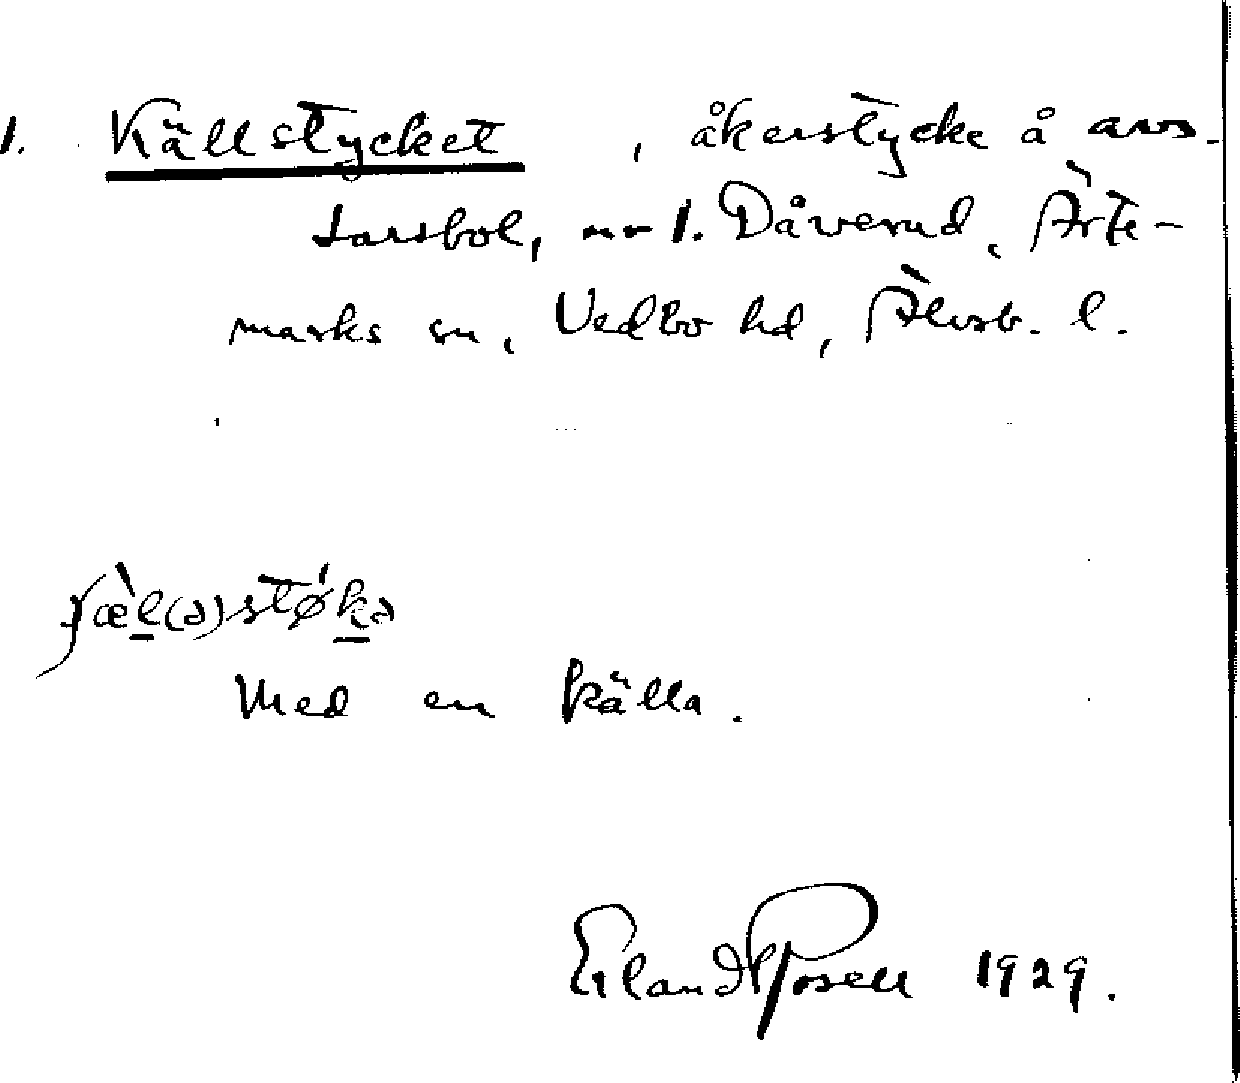 1. Källstycket, åkerstycke å avs.
Larsbol, nr 1. Dåverud, Ärte-
marks sn, Vedbo hd, Älvsb. l.
ʃæ̀l(ə)støḱə
Med en källa.
Erland Rosell 1929.